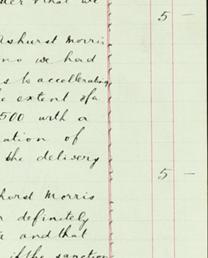 what we
5 –
Ashurst Morris
no we had
s to accellerating
e extent of a
500 with a
ation of
the delivery
5 –
hurst Morris
definitely
and that
if the sanction